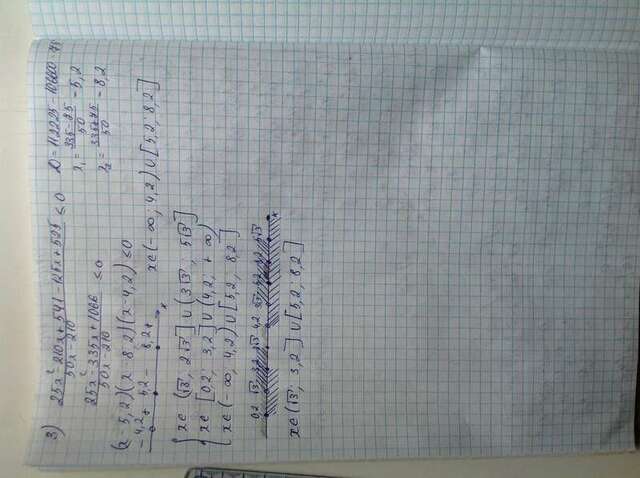 3) (25x² - 210x + 541 - 125x + 525)/(50x - 210) ≤ 0
D = 112225 - 106600 =
(25x² - 335x + 1066)/(50x - 210) ≤ 0
x₁ = (335 - 75)/50 = 5,2
x₂ = (335 + 75)/50 = 8,2
(x - 5,2)(x - 8,2)(x - 4,2) ≤ 0
- 4,2 + 5,2 - 8,2 + x
x ∈ (-∞; 4,2) ∪ [5,2; 8,2]
{ x ∈ (√3; 2√3] ∪ (3√3; 5√3]
x ∈ [0,2; 3,2] ∪ (4,2; +∞)
x ∈ (-∞; 4,2) ∪ [5,2; 8,2]
0,2 √3 3,2 4,2 3√3 5,2 8,2 5√3 x
x ∈ (√3; 3,2] ∪ [5,2; 8,2]